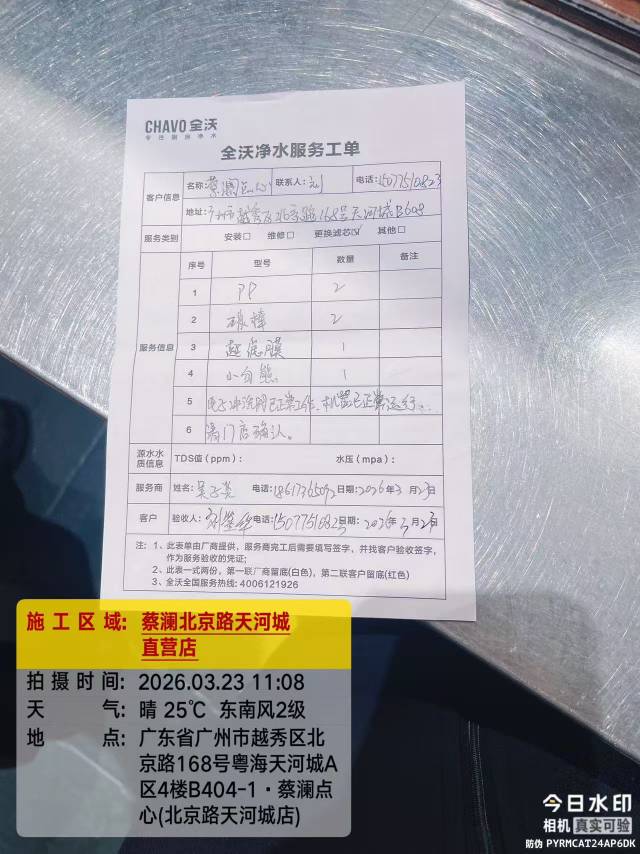 CHAVO 全沃
专注厨房净水
全沃净水服务工单
客户信息 名称: 蔡澜点心 联系人: 电话: 15077510823
地址: 广州市越秀区北京路168号天河城B608
服务类别 安装□ 维修□ 更换滤芯☑ 其他□
服务信息 序号 型号 数量 备注
1 PP 2
2 碳棒 2
3 超滤膜 1
4 小白熊 1
5 电子冲洗阀已正常工作、机器已正常运行、
6 请门店确认。
源水水质信息 TDS值(ppm): 水压(mpa):
服务商 姓名: 电话: 18617365092 日期: 2026年3月23日
客户 验收人: 电话: 15077510823 日期: 2026年3月23日
注: 1、此表单由厂商提供,服务商完工后需要填写签字,并找客户验收签字,
作为服务验收的凭证;
2、此表一式两份,第一联厂商留底(白色),第二联客户留底(红色)
3、全沃全国服务热线: 4006121926
施工区域: 蔡澜北京路天河城
直营店
拍摄时间: 2026.03.23 11:08
天气: 晴 25℃ 东南风2级
地点: 广东省广州市越秀区北
京路168号粤海天河城A
区4楼B404-1·蔡澜点
心(北京路天河城店)
今日水印
相机 真实可验
防伪 PYRMCAT24AP6DK